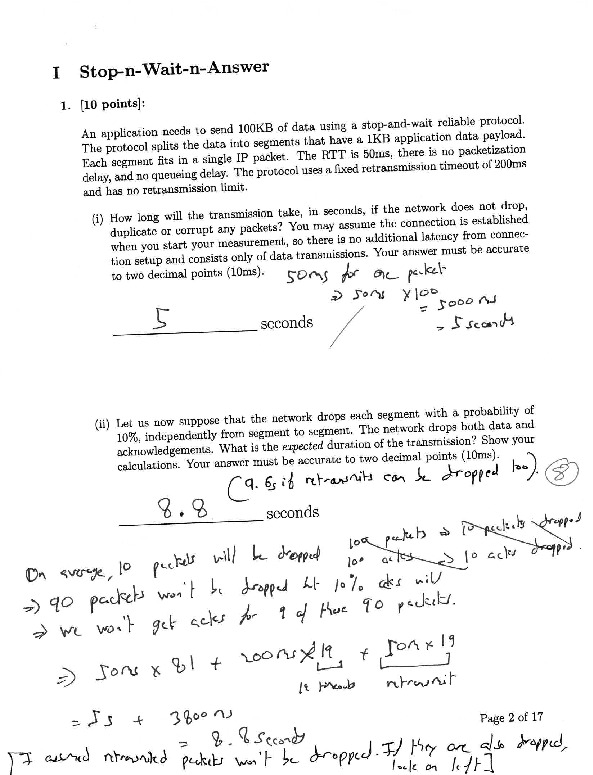 I Stop-n-Wait-n-Answer
1. [10 points]:
An application needs to send 100KB of data using a stop-and-wait reliable protocol.
The protocol splits the data into segments that have a 1KB application data payload.
Each segment fits in a single IP packet. The RTT is 50ms, there is no packetization
delay, and no queueing delay. The protocol uses a fixed retransmission timeout of 200ms
and has no retransmission limit.
(i) How long will the transmission take, in seconds, if the network does not drop,
duplicate or corrupt any packets? You may assume the connection is established
when you start your measurement, so there is no additional latency from connec-
tion setup and consists only of data transmissions. Your answer must be accurate
to two decimal points (10ms). 50ms for one packet
⇒ 50ms X100
= 5000 ms
= 5 seconds
5 seconds
(ii) Let us now suppose that the network drops each segment with a probability of
10%, independently from segment to segment. The network drops both data and
acknowledgements. What is the expected duration of the transmission? Show your
calculations. Your answer must be accurate to two decimal points (10ms).
(9.6s if retransmits can be dropped too). 8
8.8 seconds
100 packets ⇒ 10 packets dropped
100 acks ⇒ 10 acks dropped.
On average, 10 packets will be dropped
⇒ 90 packets won't be dropped but 10% acks will
⇒ we won't get acks for 9 of those 90 packets.
⇒ 50ms x 81 + 200ms X 19 + 50ms x 19
19 timeouts retransmit
= 5s + 3800 ms
= 8.8 seconds
Page 2 of 17
[I assumed retransmitted packets won't be dropped. If they are also dropped,
look on left]